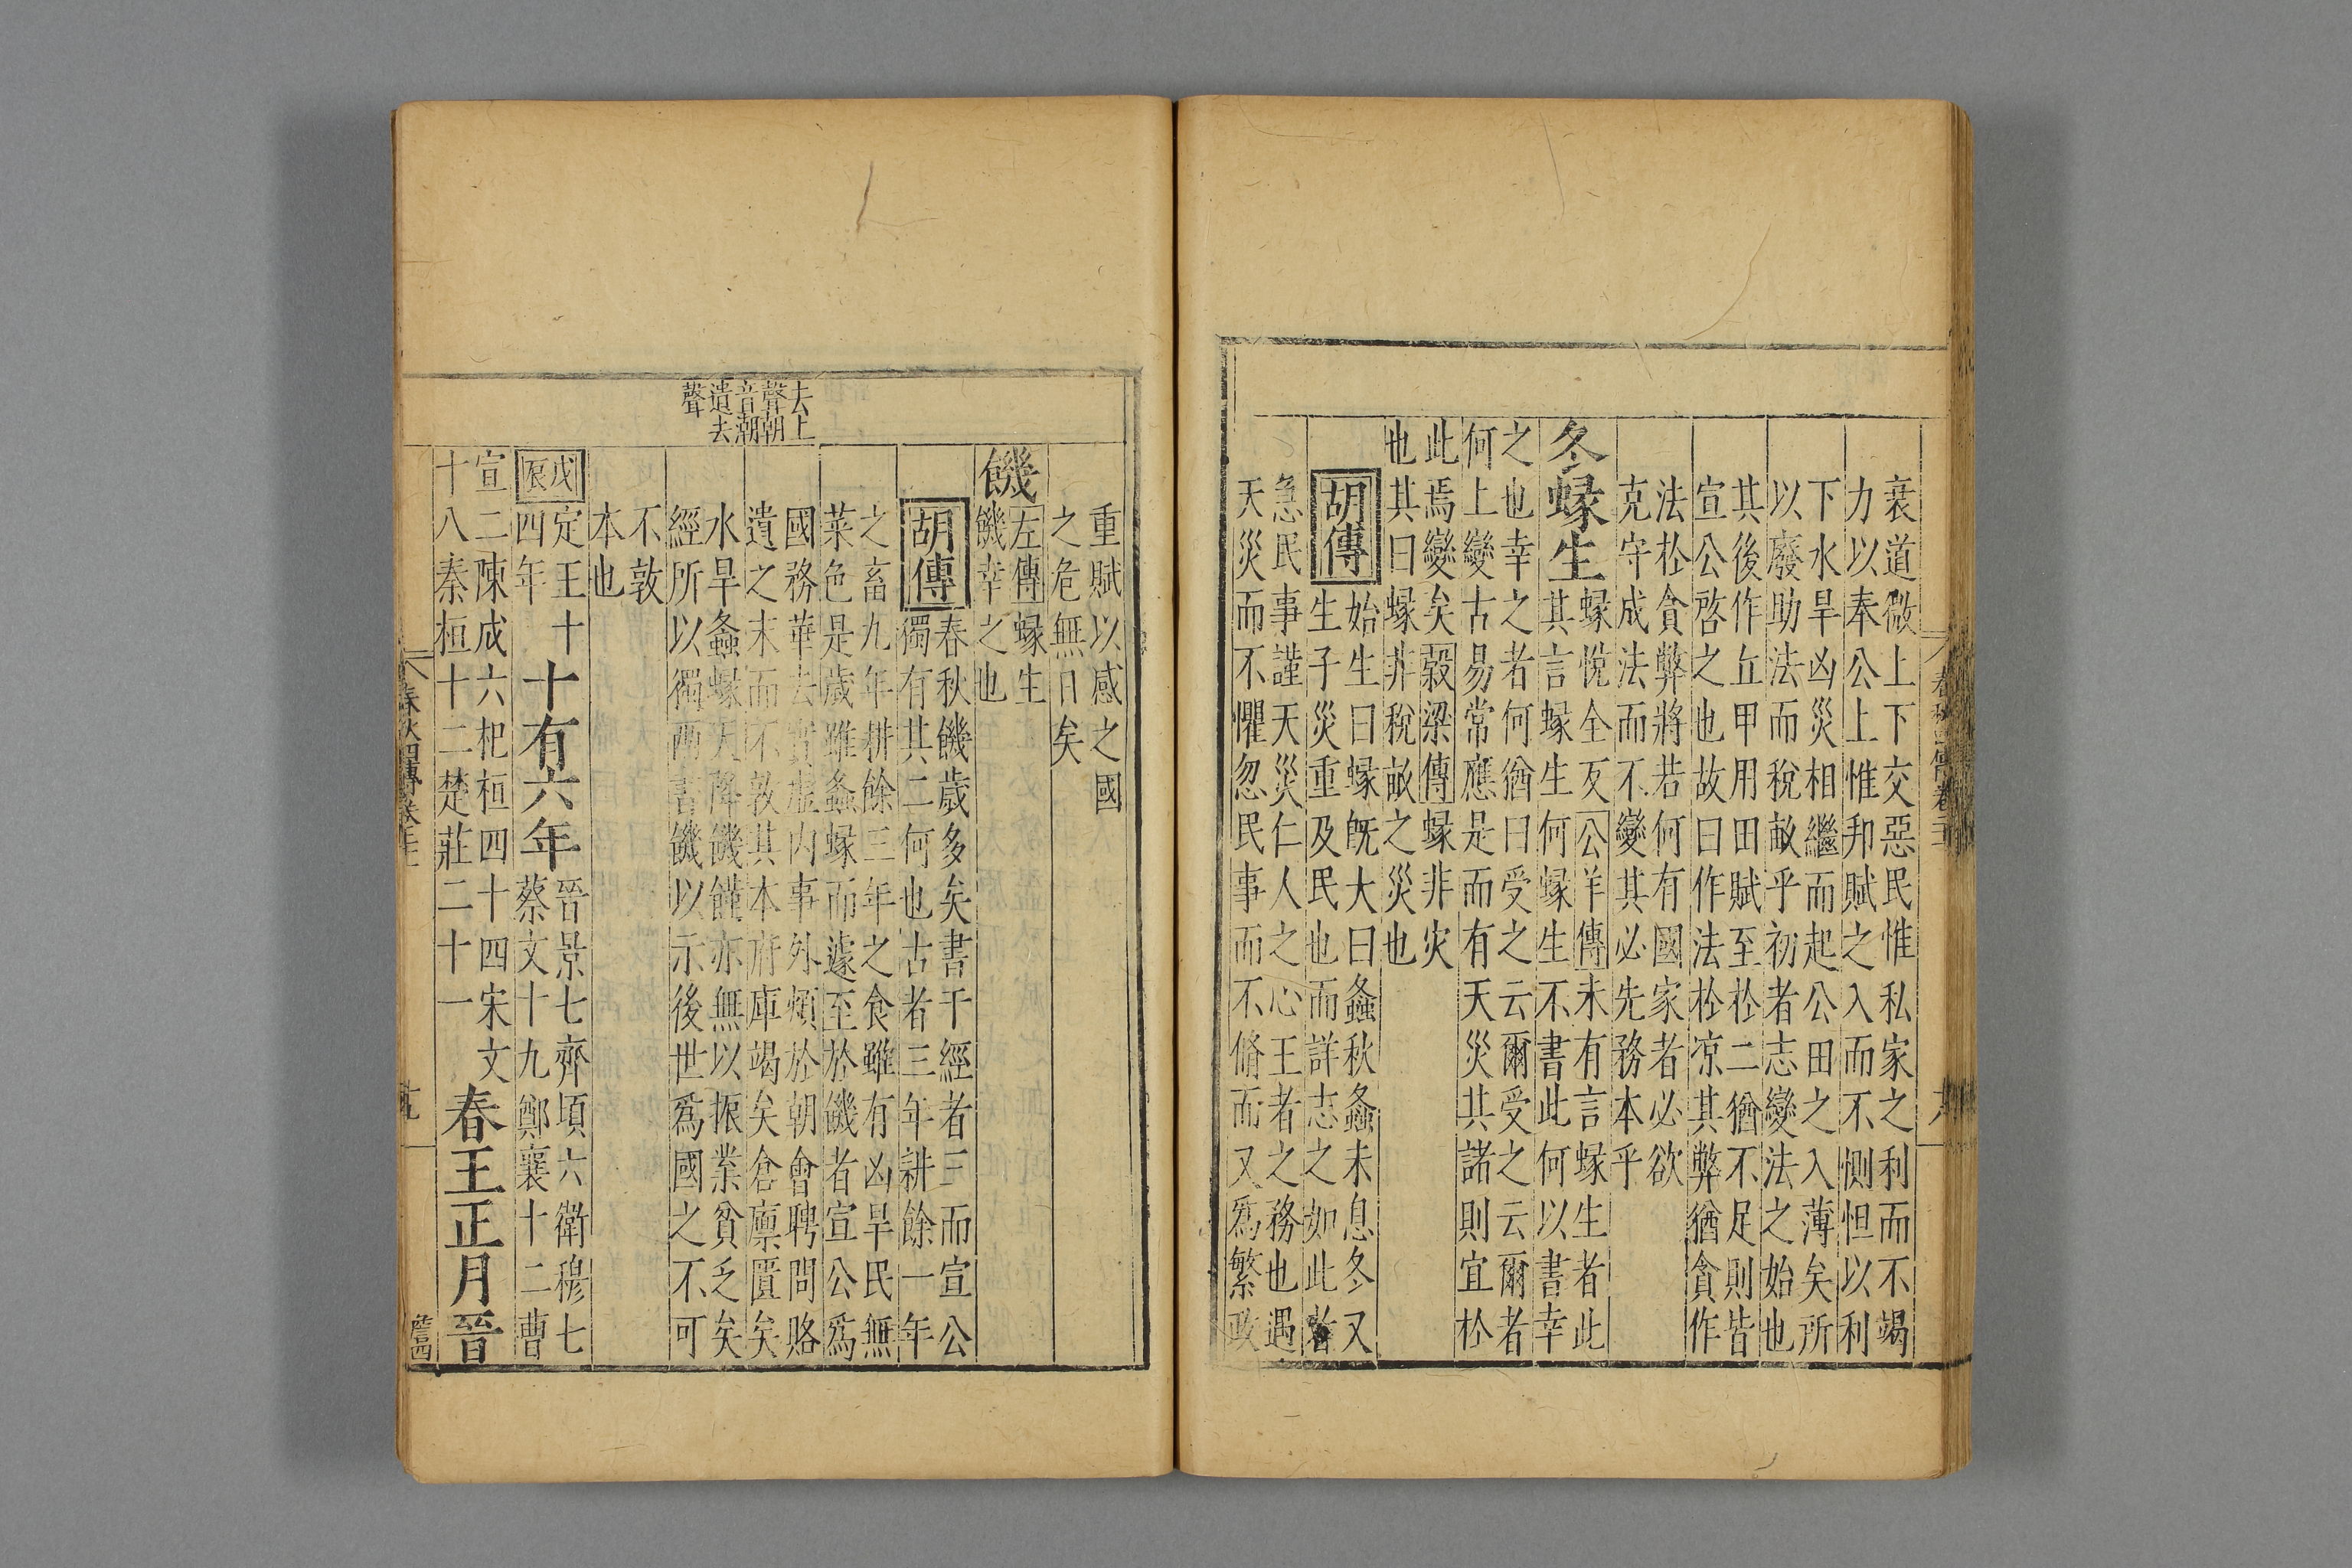 衰道微上下交惡民惟私家之利而不竭
力以奉公上惟邦賦之入而不惻怛以利
下水旱凶災相繼而起公田之入薄矣所
以廢助法而稅畝乎初者志變法之始也
其後作丘甲用田賦至於二猶不足則皆
宣公啓之也故曰作法於凉其弊猶貪作
法於貪弊將若何有國家者必欲
克守成法而不變其必先務本乎
冬蝝生
蝝悅全反公羊傳未有言蝝生者此
其言蝝生何蝝生不書此何以書幸
之也幸之者何猶曰受之云爾受之云爾者
何上變古易常應是而有天災其諸則宜於
此焉變矣穀梁傳蝝非灾
也其曰蝝非稅畝之災也
胡傳
始生曰蝝既大曰螽秋螽未息冬又
生子災重及民也而詳志之如此者
急民事謹天災仁人之心王者之務也遇
天災而不懼忽民事而不脩而又爲繁政
重賦以感之國
之危無日矣
饑
左傳蝝生
饑幸之也
胡傳
春秋饑歲多矣書于經者三而宣公
獨有其二何也古者三年耕餘一年
之畜九年耕餘三年之食雖有凶旱民無
菜色是歲雖螽蝝而遽至於饑者宣公爲
國務華去實虛内事外煩於朝會聘問賂
遺之末而不敦其本府庫竭矣倉廪匱矣
水旱螽蝝天降饑饉亦無以振業貧乏矣
經所以獨兩書饑以示後世爲國之不可
不敦
本也
去上
聲朝
音潮
遺去
聲
戊辰
定王十
四年
十有六年
晉景七齊頃六衛穆七
蔡文十九鄭襄十二曹
宣二陳成六杞桓四十四宋文
十八秦桓十二楚莊二十一
春王正月晉
春秋四傳卷二十